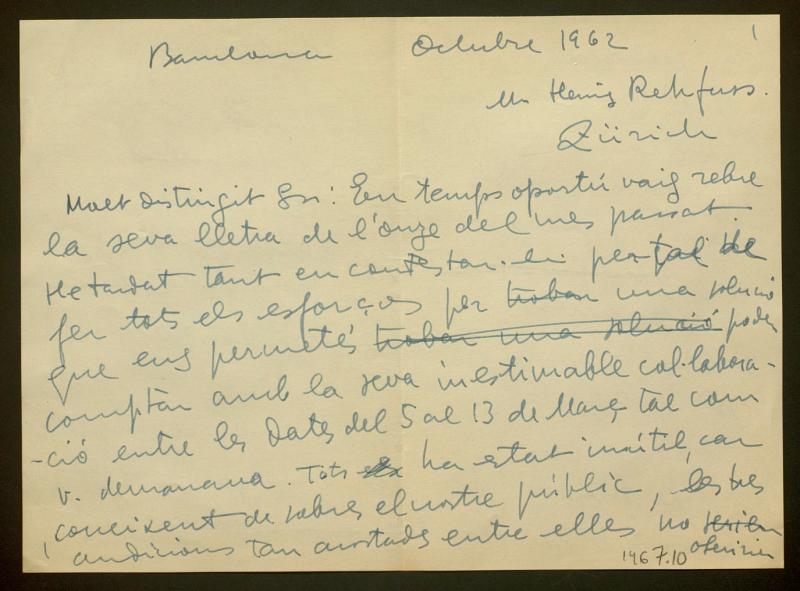 Barcelona Octubre 1962 1
Mr Heinz Rehfuss.
Zürich
Molt distingit Sr: En temps oportú vaig rebre
la seva lletra de l'onze del mes passat.
He tardat tant en contestar-li per tal de
fer tots els esforços per trobar una solució
que ens permetés trobar una solució poder
comptar amb la seva inestimable col·labora-
-ció entre les dates del 5 al 13 de Març tal com
v. demanava. Tots ha estat inútil, car
coneixent de sobres el nostre públic, les tres
audicions tan acostades entre elles no serien
oferirien
1967.10